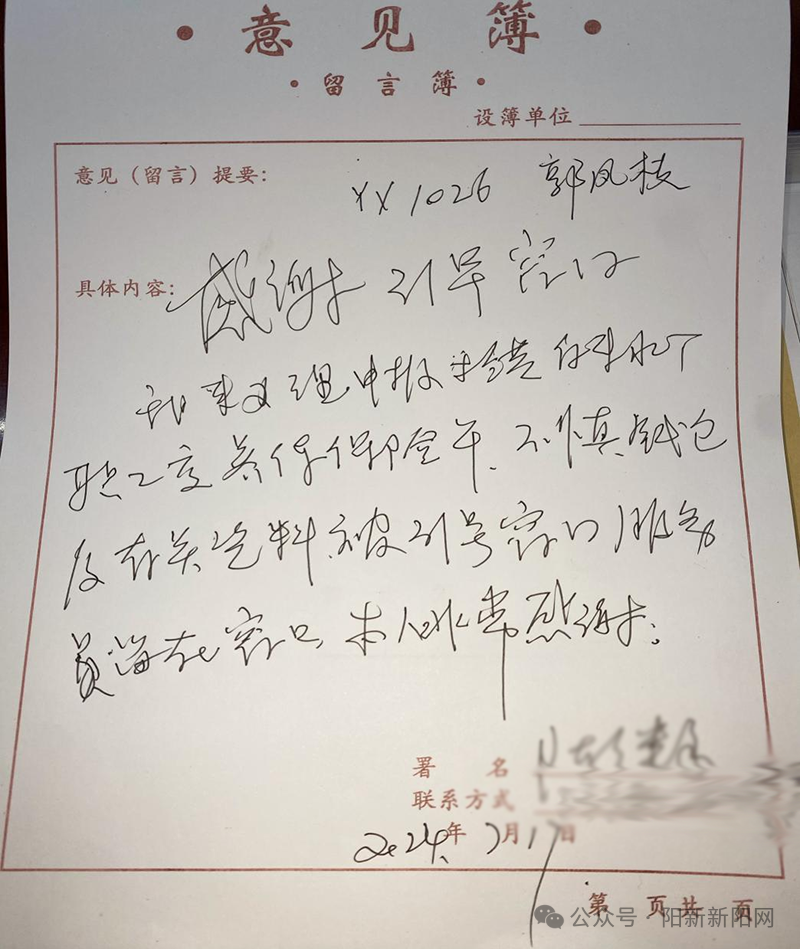 意见簿
留言簿
设簿单位
意见（留言）提要： YX1026 郭凤枝
具体内容： 感谢引号窗口
我来办理申报 自来水厂
职工 养保 不慎钱包
及有关资料被引号窗口服务
员留在窗口，本人非常感谢。
署 名
联系方式
2024年7月17日
第 页共 页
公众号 阳新新阳网